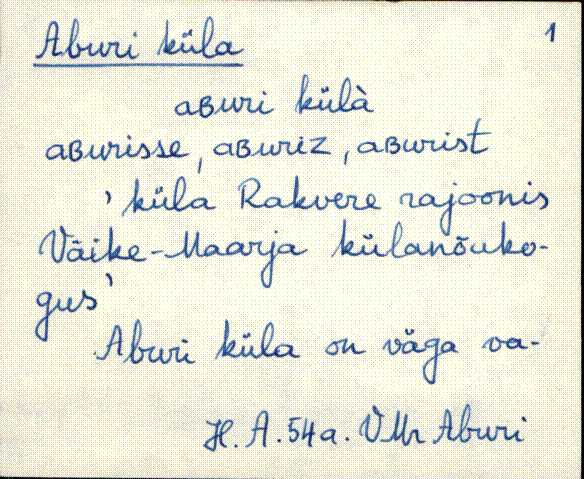 Aburi küla
1
aʙuri külà
aʙurisse, aʙuriz, aʙurist
' küla Rakvere rajoonis
Väike-Maarja külanõuko-
gus'
Aburi küla on väga va-
H. A. 54a. VMr Aburi